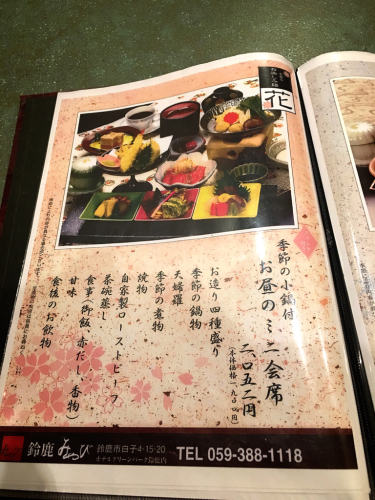 花
季節の小鍋付
お昼のミニ会席
二〇五二円
(本体価格一、九〇〇円)
お造り四種盛り
季節の鍋物
天婦羅
季節の煮物
焼物
自家製ローストビーフ
茶碗蒸し
食事(御飯 赤だし 香物)
甘味
食後のお飲物
鈴鹿 みやび
鈴鹿市白子4-15-20
ホテルグリーンパーク鈴鹿内
TEL 059-388-1118